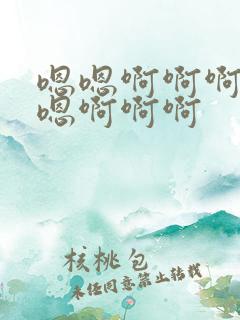 嗯嗯啊啊啊
嗯啊啊啊
核桃包
未经同意禁止转载